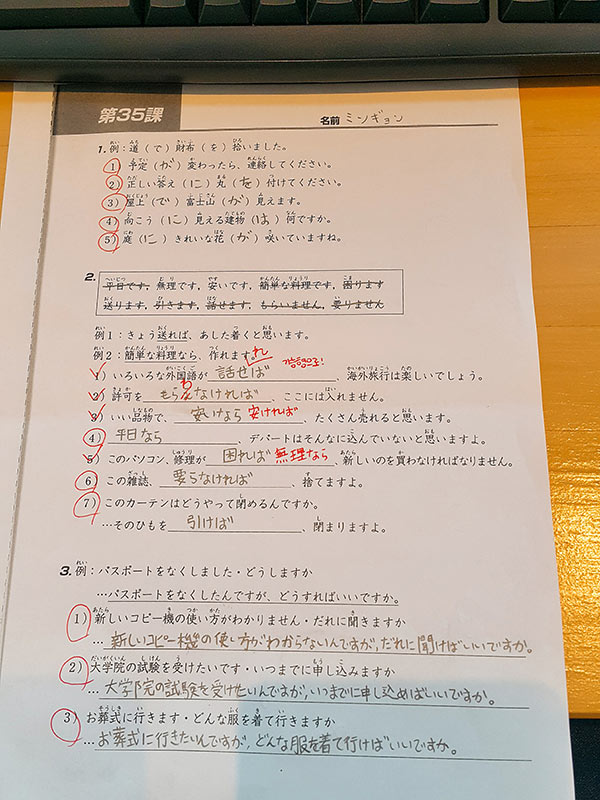 第35課
名前 ミンギョン
1. 例：道（で）財布（を）拾いました。
1）予定（が）変わったら、連絡してください。
2）正しい答え（に）丸（を）付けてください。
3）屋上（で）富士山（が）見えます。
4）向こう（に）見える建物（は）何ですか。
5）庭（に）きれいな花（が）咲いていますね。
2.
平日です，無理です，安いです，簡単な料理です，困ります
送ります，引きます，話せます，もらいません，要りません
例1：きょう送れば、あした着くと思います。
例2：簡単な料理なら、作れます。
れ 가능형으로!
1）いろいろな外国語が 話せば 、海外旅行は楽しいでしょう。
2）許可を もらえなければ わ 、ここには入れません。
3）いい品物で、 安いなら 安ければ 、たくさん売れると思います。
4）平日なら 、デパートはそんなに込んでいないと思いますよ。
5）このパソコン、修理が 困れば 無理なら 、新しいのを買わなければなりません。
6）この雑誌、 要らなければ 、捨てますよ。
7）このカーテンはどうやって閉めるんですか。
…そのひもを 引けば 、閉まりますよ。
3. 例：パスポートをなくしました・どうしますか
…パスポートをなくしたんですが、どうすればいいですか。
1）新しいコピー機の使い方がわかりません・だれに聞きますか
… 新しいコピー機の使い方がわからないんですが，だれに聞けばいいですか。
2）大学院の試験を受けたいです・いつまでに申し込みますか
… 大学院の試験を受けたいんですが，いつまでに申し込めばいいですか。
3）お葬式に行きます・どんな服を着て行きますか
… お葬式に行きたいんですが，どんな服を着て行けばいいですか。